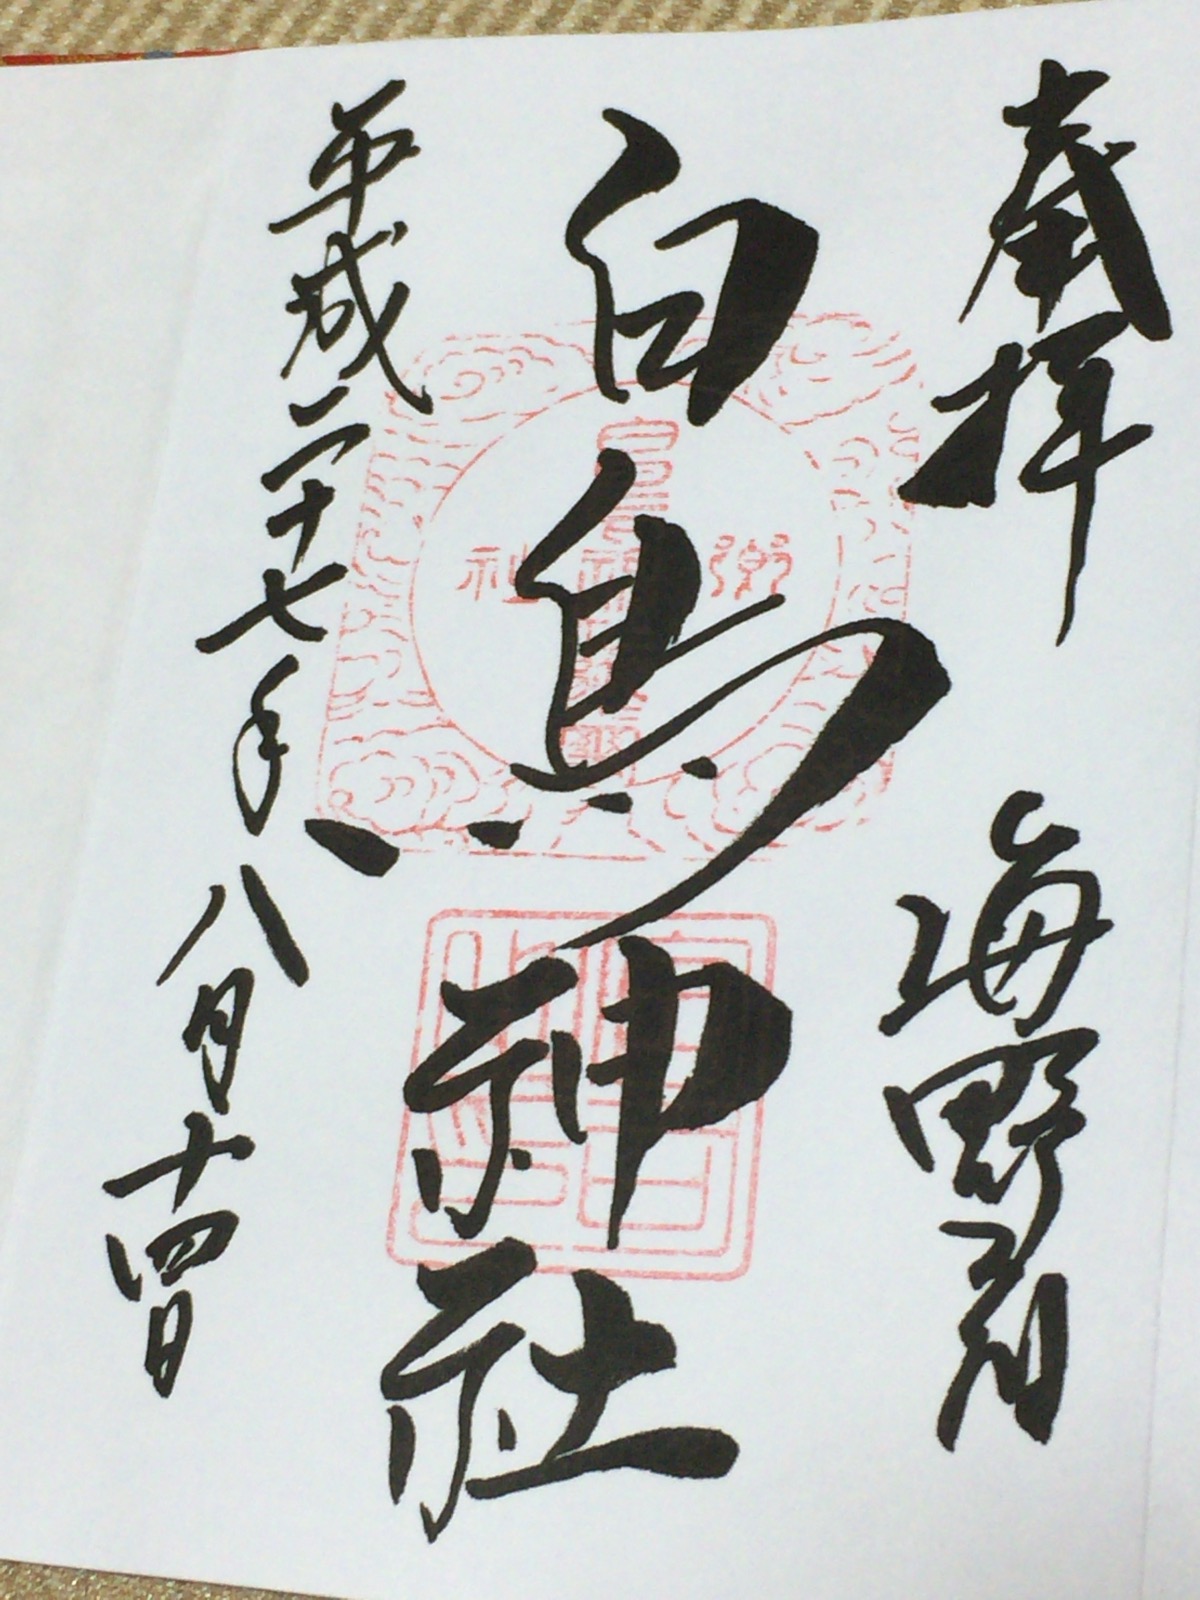 奉拝 海野宿
白鳥神社
平成二十七年八月十四日